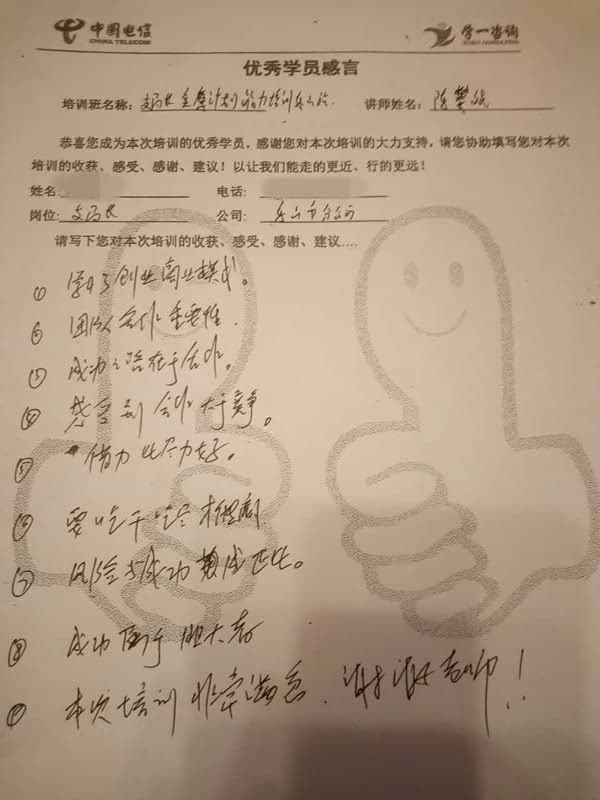 中国电信
CHINA TELECOM
学一咨询
优秀学员感言
培训班名称：支局长 计划能力培训乐山站 讲师姓名：陈
恭喜您成为本次培训的优秀学员，感谢您对本次培训的大力支持，请您协助填写您对本次
培训的收获、感受、感谢、建议！以让我们能走的更近、行的更远！
姓名： 电话：
岗位：支局长 公司：乐山市分公司
请写下您对本次培训的收获、感受、感谢、建议....
① 学习了创业商业模式。
② 团队合作重要性.
③ 成功之路在于合作。
④ 感受到合作大于竞争。
⑤ 借力比尽力好。
⑥ 要吃干吃尽
⑦ 风险与成功成正比。
⑧ 成功属于胆大者
⑨ 本次培训非常满意．谢谢老师！